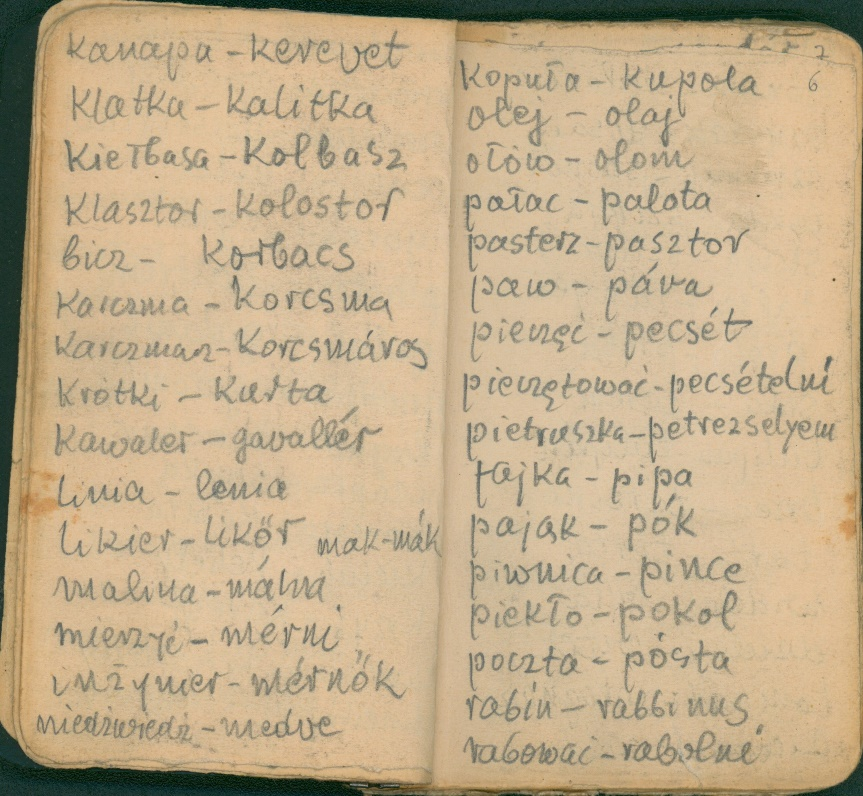 kanapa – kerevet
klatka – kalitka
kiełbasa – kolbasz
klasztor – kolostor
bicz – korbacs
karczma – korcsma
karczmarz – korcsmáros
krótki – kurta
kawaler – gavallér
linia – lenia
likier – likőr mak – mák
malina – málna
mierzyć – mérni
inżynier – mérnők
niedźwiedź – medve
7
6
kopuła – kupola
olej – olaj
ołów – olom
pałac – palota
pasterz – pasztor
paw – páva
pieczęć – pecsét
pieczętować – pecsételni
pietruszka – petrezselyem
fajka – pipa
pająk – pók
piwnica – pince
piekło – pokol
poczta – pósta
rabin – rabbinus
rabować – rabolni